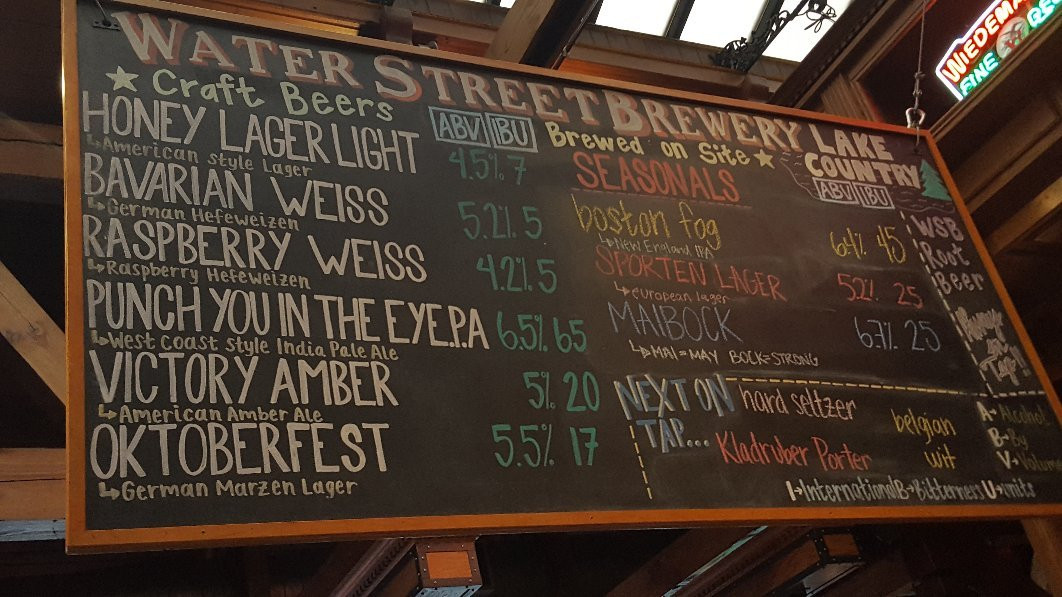 WATER STREET BREWERY LAKE COUNTRY
Craft Beers
ABV IBU
HONEY LAGER LIGHT 4.5% 7
American Style Lager
BAVARIAN WEISS 5.2% 5
German Hefeweizen
RASPBERRY WEISS 4.2% 5
Raspberry Hefeweizen
PUNCH YOU IN THE EYE.P.A 6.5% 65
West Coast Style India Pale Ale
VICTORY AMBER 5% 20
American Amber Ale
OKTOBERFEST 5.5% 17
German Marzen Lager
Brewed on Site
SEASONALS
ABV IBU
boston fog 6.4% 45
New England IPA
SPORTEN LAGER 5.2% 25
european lager
MAIBOCK 6.7% 25
MAI=MAY BOCK=STRONG
WSB
Root
Beer
Always
on
Tap!
NEXT ON
TAP...
hard seltzer
Kladruber Porter
belgian
wit
A-Alcohol
B-By
V-Volume
I-International B-Bitterness U-units
WIEDEMA
FINE